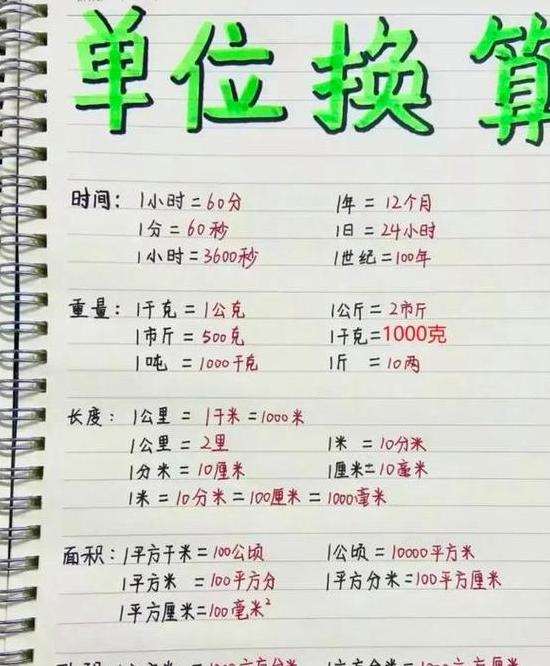 单位换算
时间: 1小时=60分 1年=12个月
1分=60秒 1日=24小时
1小时=3600秒 1世纪=100年
重量: 1千克=1公克 1公斤=2市斤
1市斤=500克 1千克=1000克
1吨=1000千克 1斤=10两
长度: 1公里=1千米=1000米
1公里=2里 1米=10分米
1分米=10厘米 1厘米=10毫米
1米=10分米=100厘米=1000毫米
面积: 1平方千米=100公顷 1公顷=10000平方米
1平方米=100平方分 1平方分米=100平方厘米
1平方厘米=100毫米²